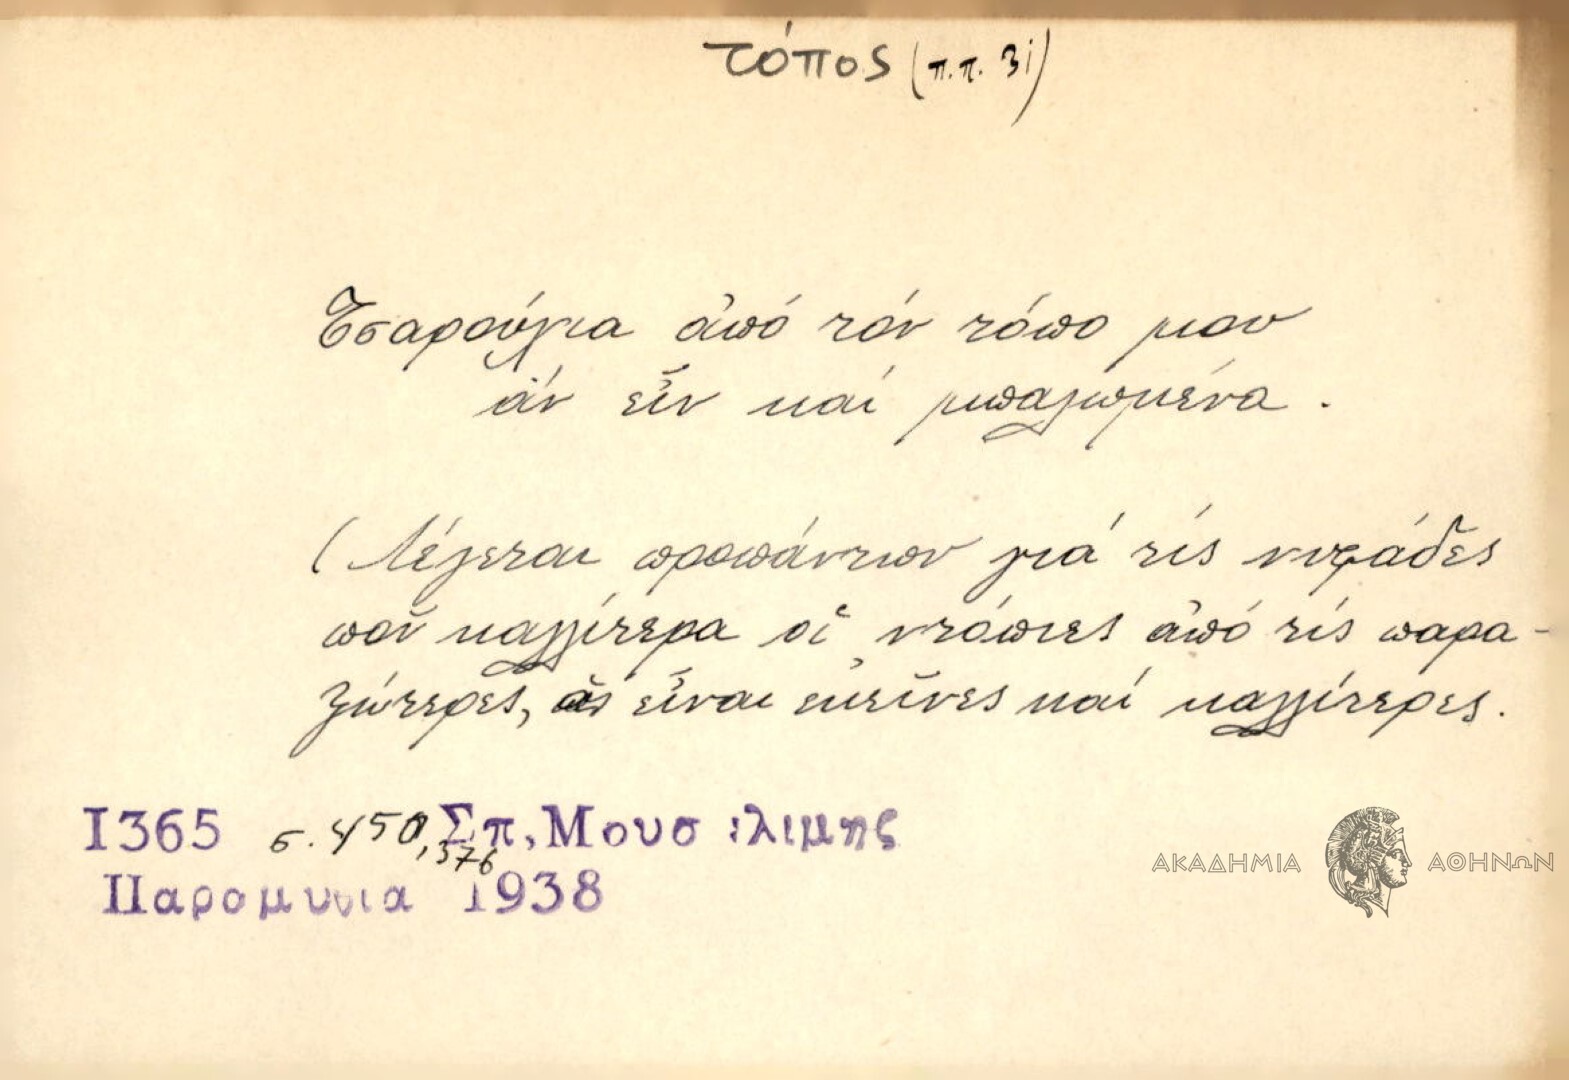 τόπος (π.π. 3i)
Τσαρούχια ἀπό τόν τόπο μου
ἄν εἶν καί μπαλωμένα.
(Λέγεται προπάντων γιά τίς νυφάδες
ποὖν καλλίτερα οἱ ντόπιες ἀπό τίς παρα-
ζώτερες, ἄς εἶναι ἐκεῖνες καί καλλίτερες.
1365 σ. 450,376 Σπ. Μουσελίμης
Παραμυθια 1938
ΑΚΑΔΗΜΙΑ ΑΘΗΝΩΝ